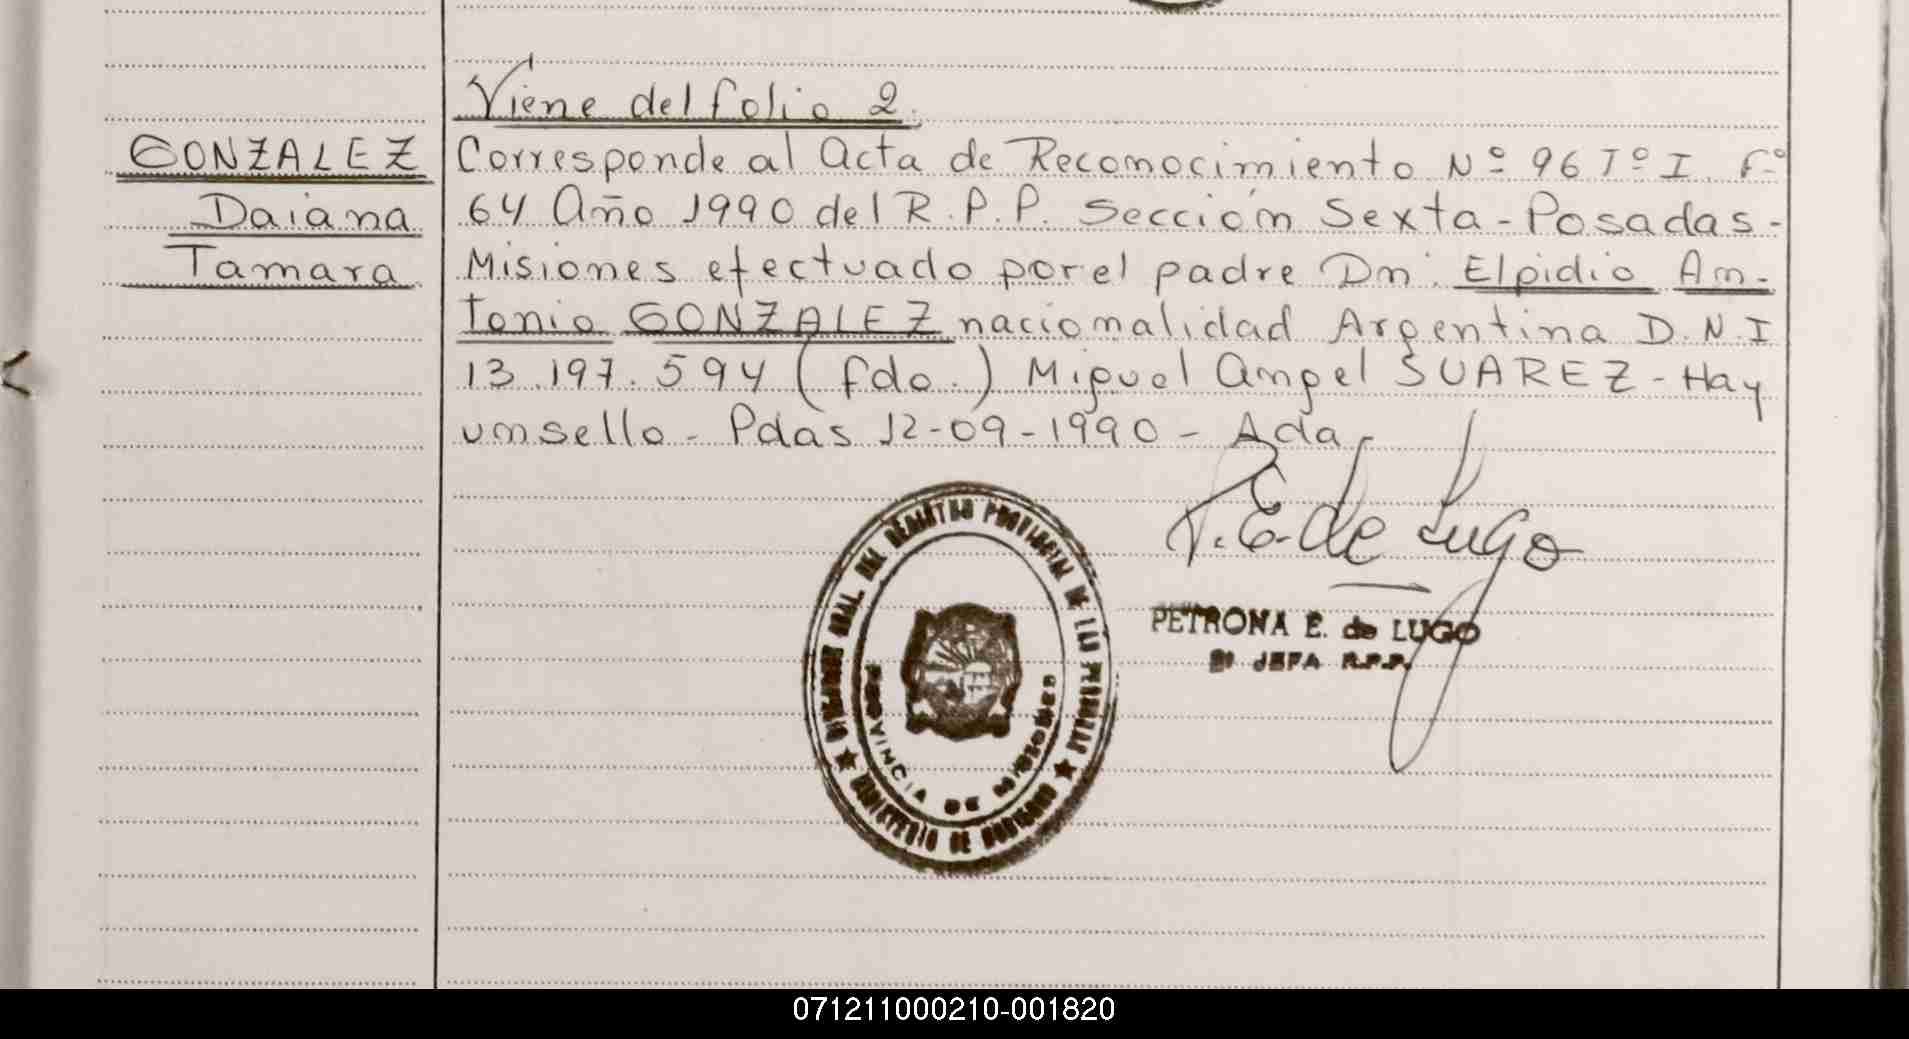 Viene del folio 2.
GONZALEZ
Daiana
Tamara
Corresponde al Acta de Reconocimiento Nº 96 Tº I. Fº
64 Año 1990 del R.P.P. Sección Sexta - Posadas -
Misiones efectuado por el padre Dn. Elpidio An-
tonio GONZALEZ nacionalidad Argentina D.N.I
13.197.594 (fdo.) Miguel Angel SUAREZ - Hay
un sello - Pdas 12-09-1990 - Ada
P. E. de Lugo
PETRONA E. de LUGO
JEFA R.P.P.
DEL REGISTRO PROVINCIAL DE LAS PERSONAS
PROVINCIA DE MISIONES
MINISTERIO DE GOBIERNO
071211000210-001820